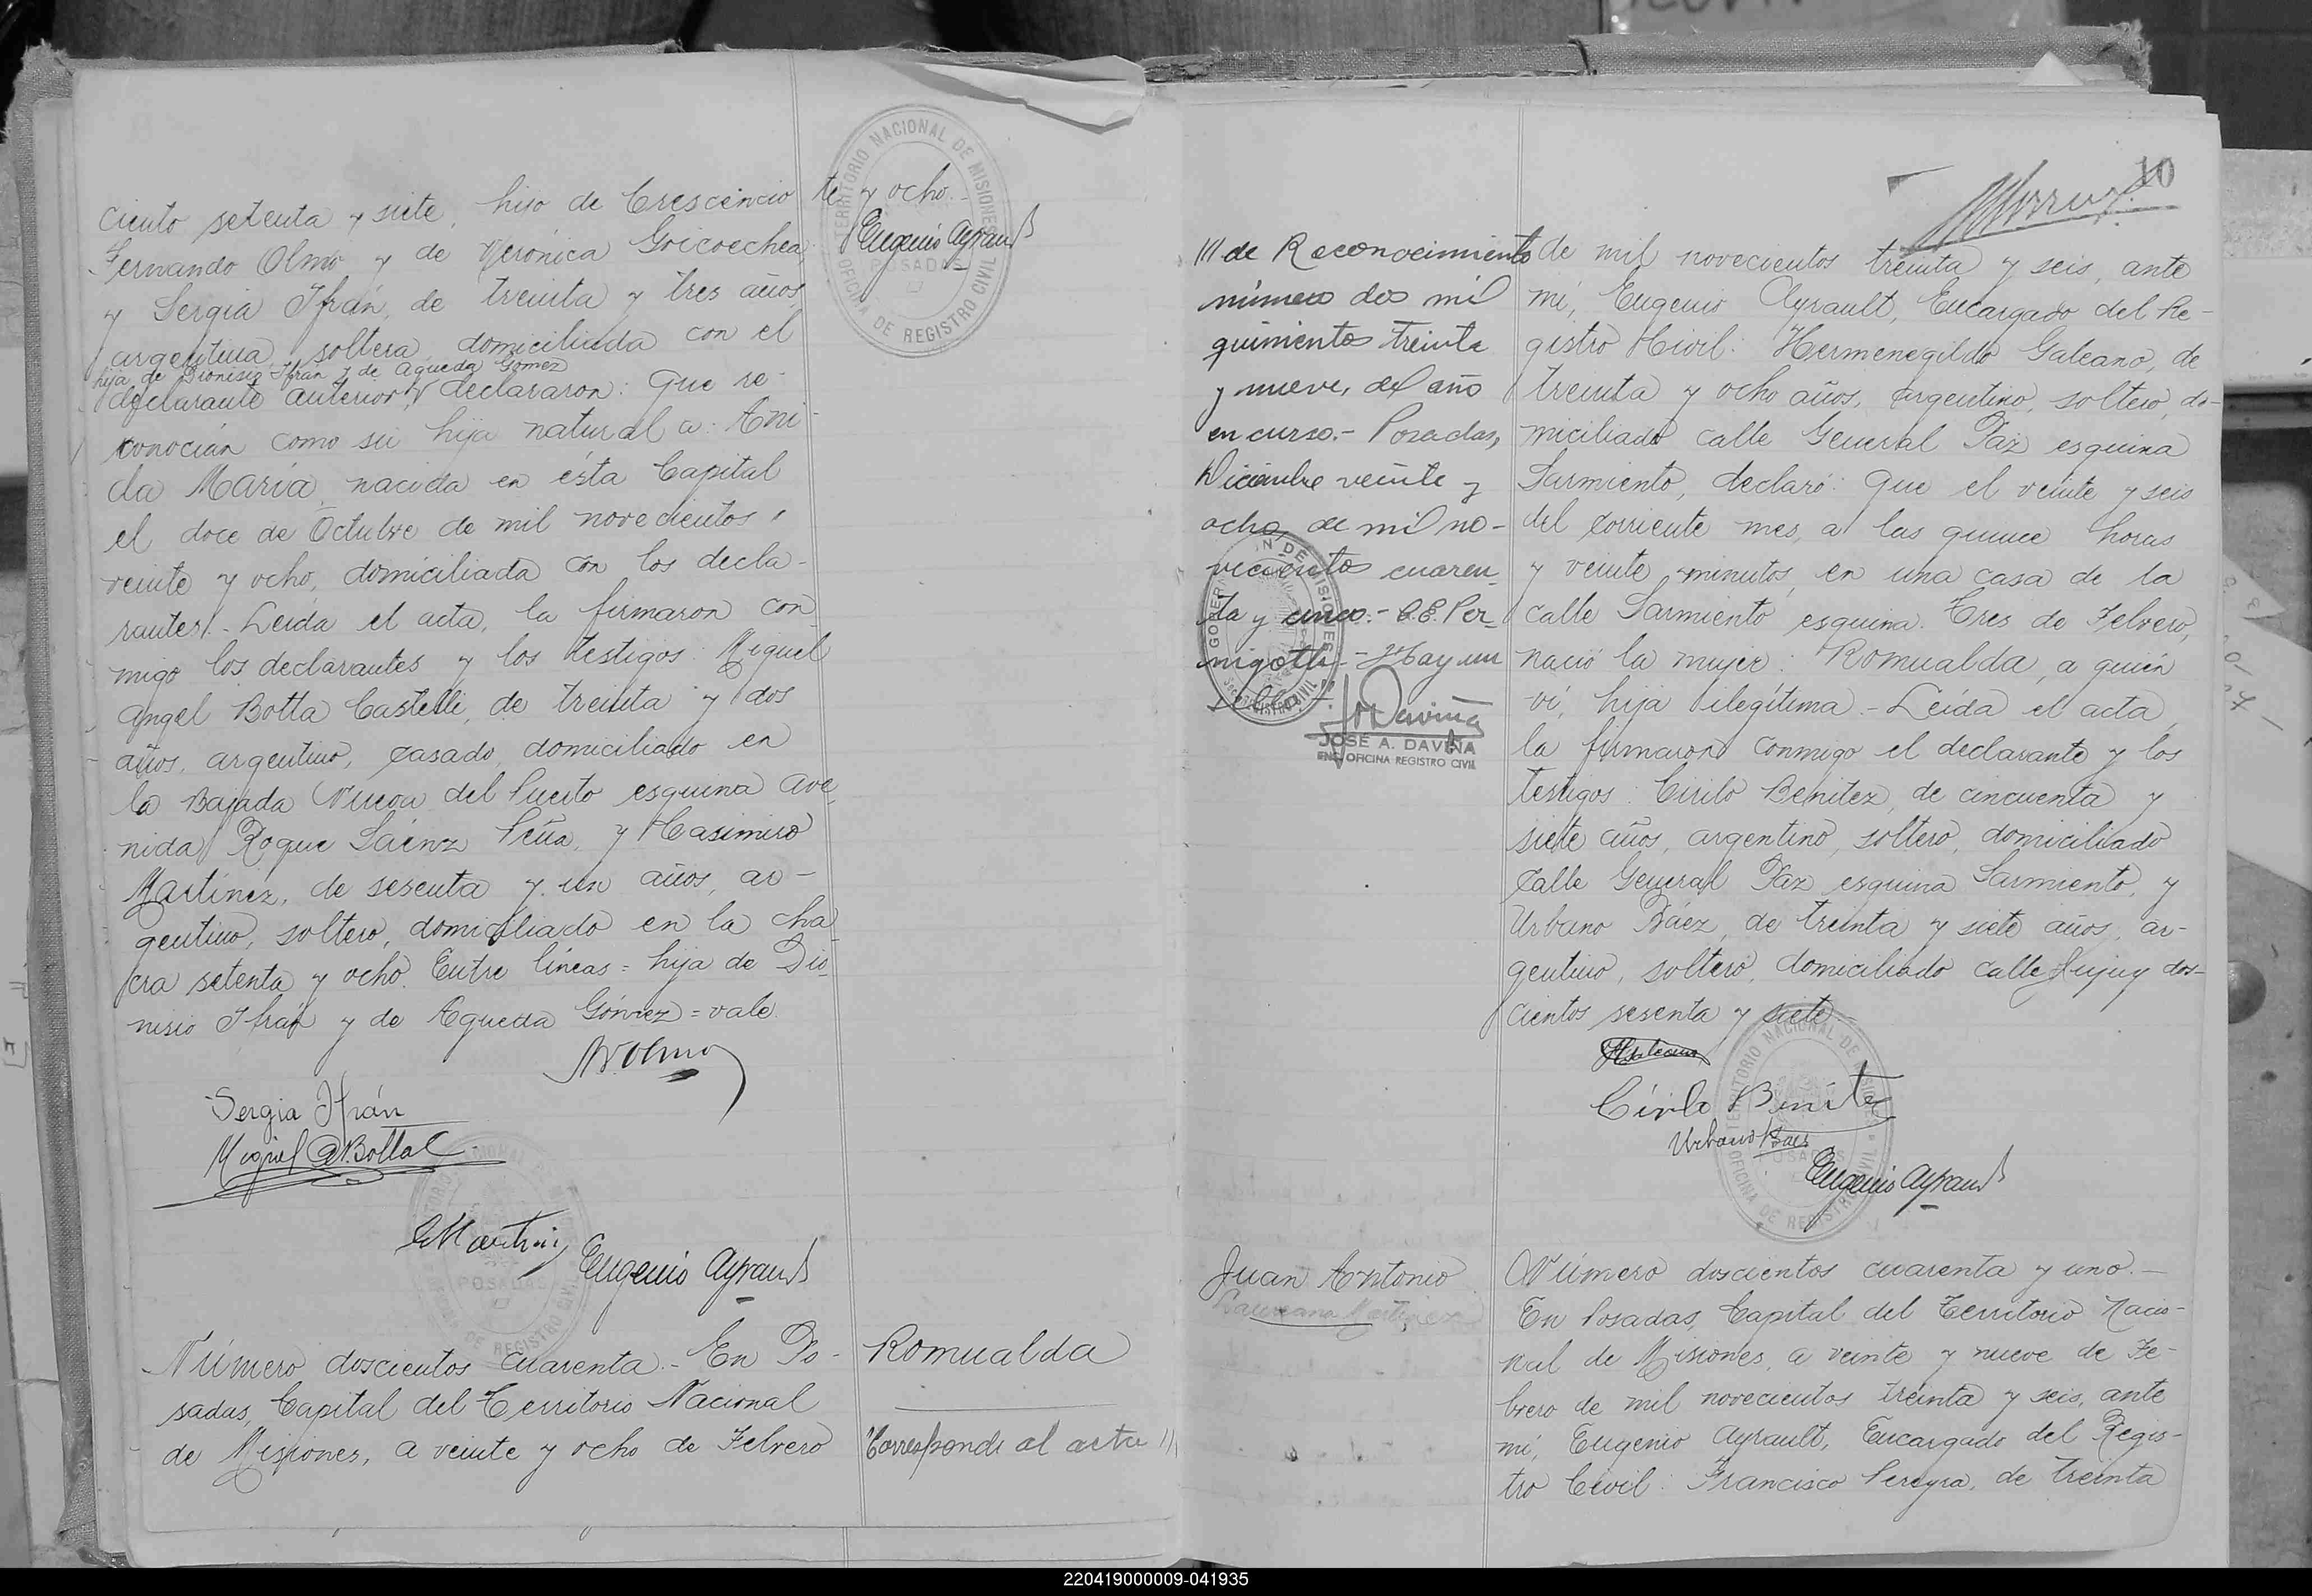 ciento setenta y siete, hijo de Crescencio
Fernando Olmo y de Verónica Goicoechea
y Sergia Ifrán, de treinta y tres años
argentina, soltera, domiciliada con el
hija de Dionisio Ifrán y de Agueda Gómez
declarante anterior, declararon: Que re-
conocían como su hija natural a: Ani-
da María, nacida en ésta Capital
el doce de Octubre de mil novecientos
veinte y ocho, domiciliada con los decla-
rantes.- Leída el acta, la firmaron con
migo los declarantes y los testigos: Miguel
Angel Botta Castelli, de treinta y dos
años, argentino, casado, domiciliado en
la Bajada Nueva del Puerto esquina Ave
nida Roque Sáenz Peña, y Casimiro
Martínez, de sesenta y un años, ar-
gentino, soltero, domiciliado en la cha
cra setenta y ocho. Entre líneas = hija de Dio
nisio Ifrán y de Agueda Gómez = vale.
Sergia Ifrán
Miguel A Botta C
Eugenio Ayrault
Número doscientos cuarenta.- En Po-
sadas, Capital del Territorio Nacional
de Misiones, a veinte y ocho de Febrero
te y ocho.-
Eugenio Ayrault
TERRITORIO NACIONAL DE MISIONES
POSADAS
OFICINA DE REGISTRO CIVIL
Romualda
Corresponde al acta ///
10
/// de Reconocimiento
número dos mil
quinientos treinta
y nueve, del año
en curso.- Posadas,
Diciembre veinte y
ocho, de mil no-
vecientos cuaren
ta y cinco.- C.E. Per
nigotti.- Hay un
sello.-
JOSÉ A. DAVIÑA
ENC. OFICINA REGISTRO CIVIL
de mil novecientos treinta y seis, ante
mí, Eugenio Ayrault, Encargado del Re-
gistro Civil: Hermenegildo Galeano, de
treinta y ocho años, argentino, soltero, do-
miciliado calle General Paz esquina
Sarmiento, declaró: Que el veinte y seis
del corriente mes, a las quince horas
y veinte minutos, en una casa de la
calle Sarmiento esquina Tres de Febrero,
nació la mujer: Romualda, a quién
ví, hija ilegítima.- Leída el acta,
la firmaron conmigo el declarante y los
testigos: Cirilo Benítez, de cincuenta y
siete años, argentino, soltero, domiciliado
calle General Paz esquina Sarmiento, y
Urbano Báez, de treinta y siete años, ar-
gentino, soltero, domiciliado calle Jujuy dos-
cientos sesenta y siete.-
Cirilo Benítez
Urbano Baez
Eugenio Ayrault
Juan Antonio
Número doscientos cuarenta y uno.-
En Posadas, Capital del Territorio Nacio-
nal de Misiones, a veinte y nueve de Fe-
brero de mil novecientos treinta y seis, ante
mí, Eugenio Ayrault, Encargado del Regis-
tro Civil: Francisco Pereyra, de treinta
220419000009-041935